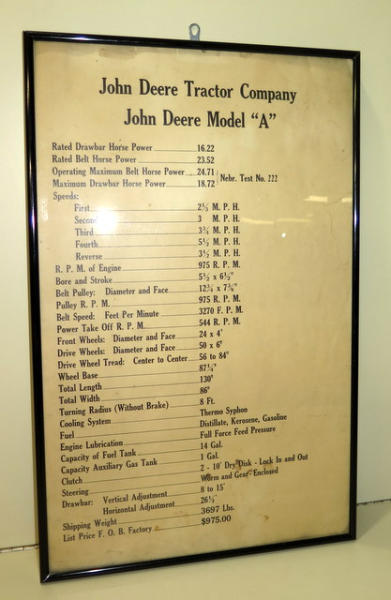 John Deere Tractor Company
John Deere Model "A"
Rated Drawbar Horse Power 16.22
Rated Belt Horse Power 23.52
Operating Maximum Belt Horse Power 24.71
Maximum Drawbar Horse Power 18.72
Nebr. Test No. 222
Speeds:
First 2⅓ M. P. H.
Second 3 M. P. H.
Third 3¾ M. P. H.
Fourth 5½ M. P. H.
Reverse 3½ M. P. H.
R. P. M. of Engine 975 R. P. M.
Bore and Stroke 5½ x 6½"
Belt Pulley: Diameter and Face 12¾ x 7⅜"
Pulley R. P. M. 975 R. P. M.
Belt Speed: Feet Per Minute 3270 F. P. M.
Power Take Off R. P. M. 544 R. P. M.
Front Wheels: Diameter and Face 24 x 4"
Drive Wheels: Diameter and Face 50 x 6"
Drive Wheel Tread: Center to Center 56 to 84"
Wheel Base 87¼"
Total Length 130"
Total Width 86"
Turning Radius (Without Brake) 8 Ft.
Cooling System Thermo Syphon
Fuel Distillate, Kerosene, Gasoline
Engine Lubrication Full Force Feed Pressure
Capacity of Fuel Tank 14 Gal.
Capacity Auxiliary Gas Tank 1 Gal.
Clutch 2 - 10" Dry Disk - Lock In and Out
Steering Worm and Gear Enclosed
Drawbar: Vertical Adjustment 8 to 15"
Horizontal Adjustment 26½"
Shipping Weight 3697 Lbs.
List Price F. O. B. Factory $975.00